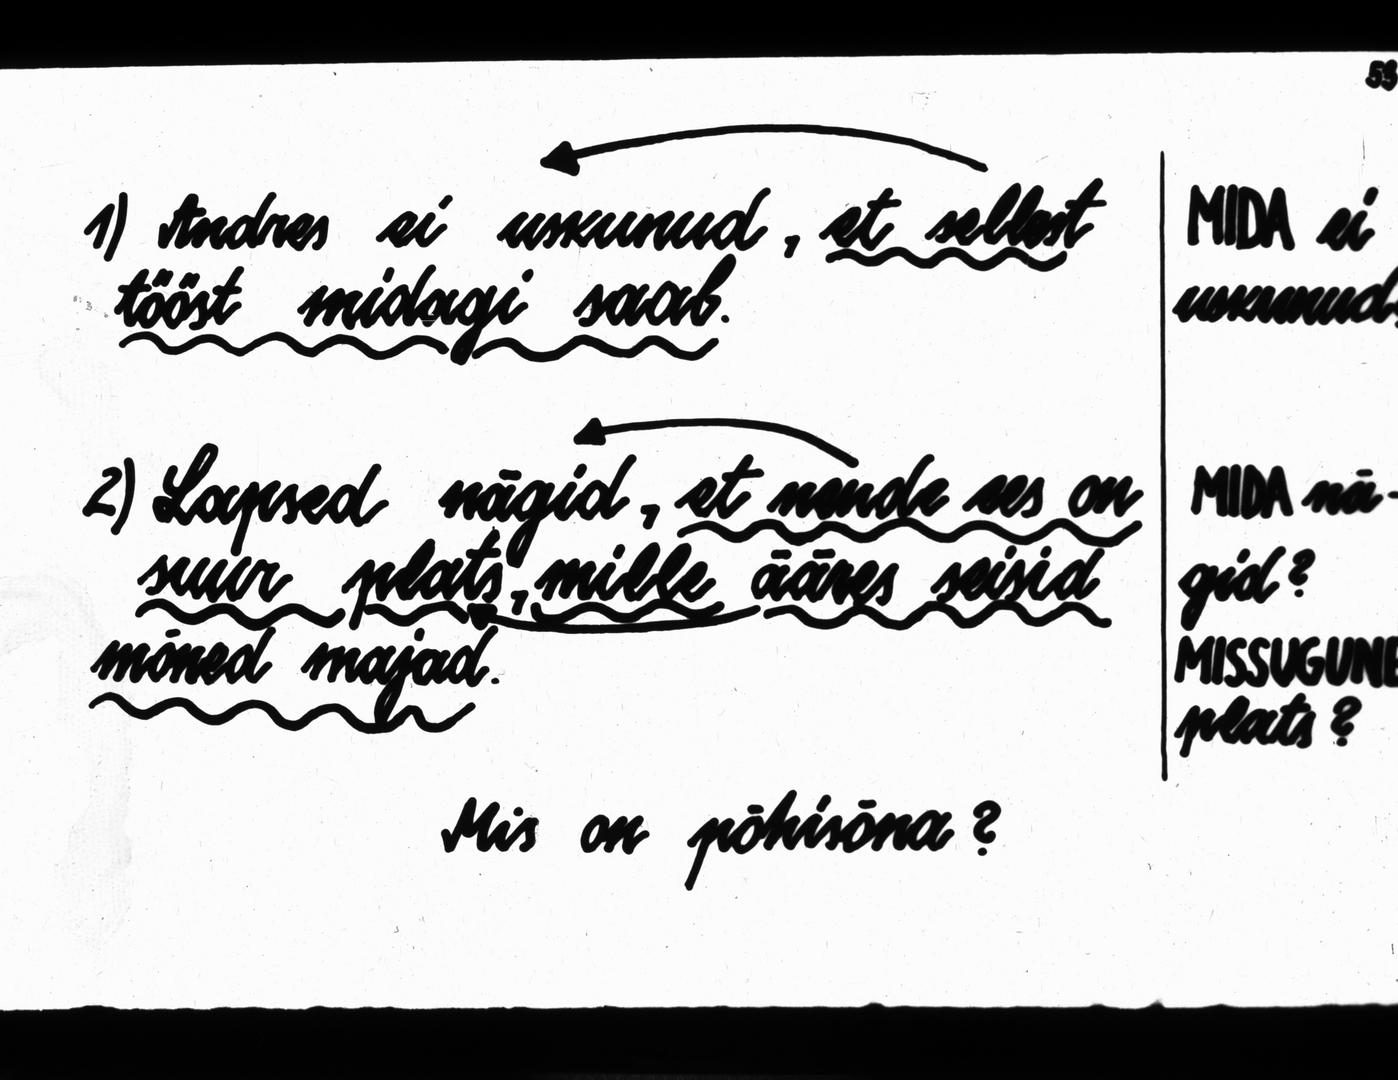 53
1) Andres ei uskunud, et sellest
tööst midagi saab.
MIDA ei
uskunud?
2) Lapsed nägid, et nende ees on
suur plats, mille ääres seisid
mõned majad.
MIDA nä-
gid?
MISSUGUNE
plats?
Mis on põhisõna?